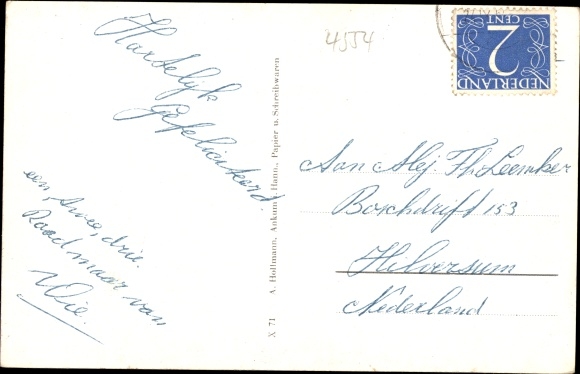 Hartelijk
Gefeliciteerd
een, twee, drie.
Raad maar van
Wie.
4554
X 71 A. Holtmann, Ankum i. Hann., Papier u. Schreibwaren
NEDERLAND
2
CENT
Aan Mej. Th. Leemker
Boschdrift 153
Hilversum
Nederland